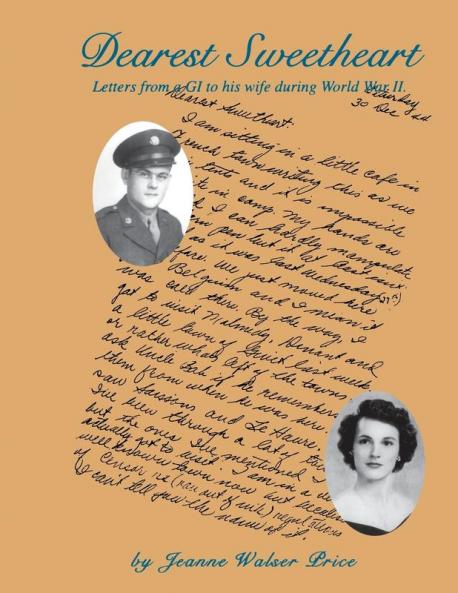 Dearest Sweetheart
Letters from a GI to his wife during World War II.
Saturday
30 Dec 44
Dearest Sweetheart:
I am sitting in a little cafe in
French town writing this as we
tents and it is impossible
in camp. My hands are
I can hardly manipulate
pen but it at least
as it was last Wednesday
fire. We just moved here
Belgium and I mean it
was cold there. By the way, I
got to visit Malmedy, Dinant and
a little town of last week
or rather what's left of the towns.
ask Uncle Bob if he remembers
them from when he was here.
saw Soissons and Le Havre.
I've been through a lot of
but the ones I've mentioned I
actually got to visit. I am in a
well known town now but because
of censor's (now out of date) regulations
I can't tell you the name of it.
by Jeanne Walser Price